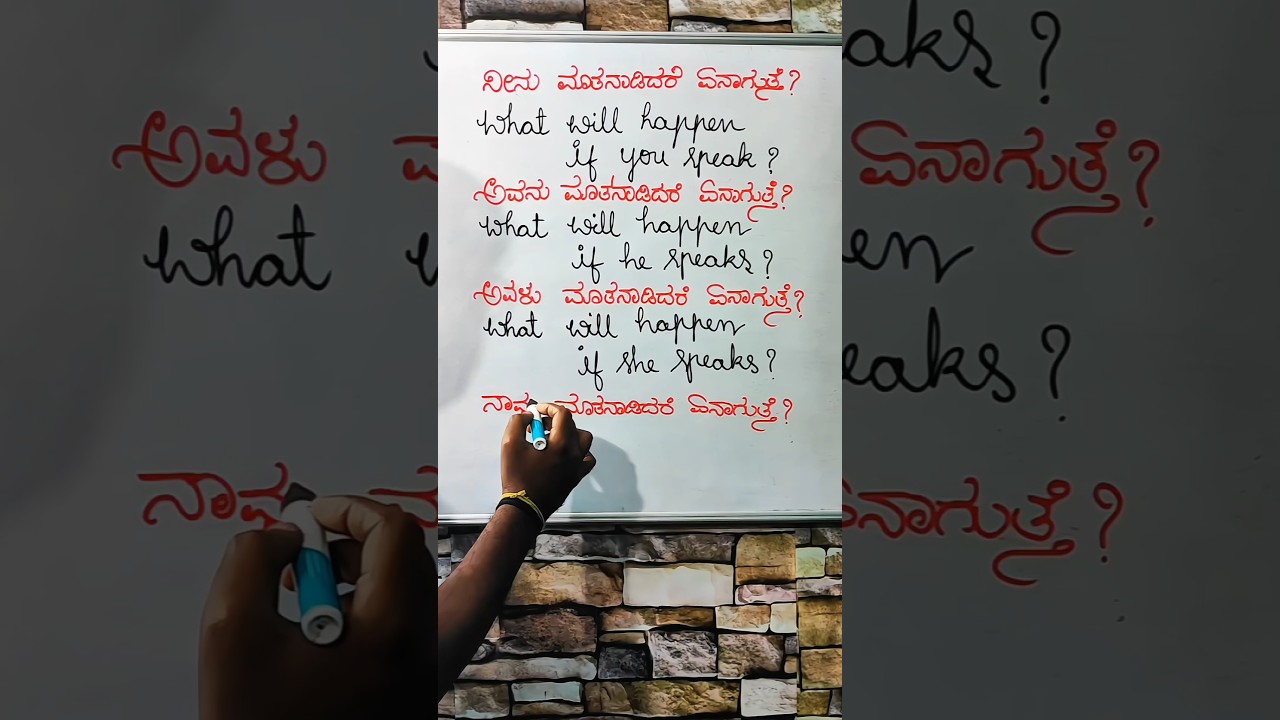 ನೀನು ಮಾತನಾಡಿದರೆ ಏನಾಗ್ತುತ್ತೆ?
what will happen
if you speak?
ಅವನು ಮಾತನಾಡಿದರೆ ಏನಾಗುತ್ತೆ?
what will happen
if he speaks?
ಅವಳು ಮಾತನಾಡಿದರೆ ಏನಾಗುತ್ತೆ?
what will happen
if she speaks?
ಮಾತನಾಡಿದರೆ ಏನಾಗುತ್ತೆ?